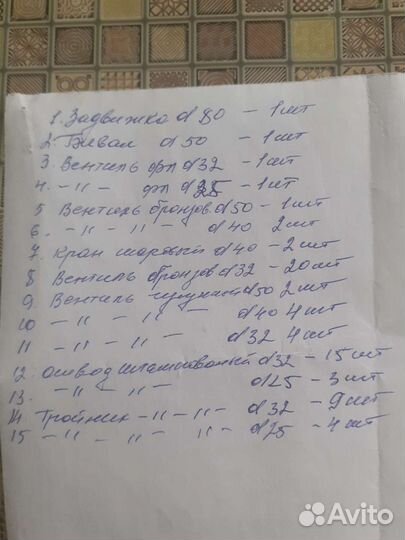 1. Задвижка d 80 - 1 шт
2. d 50 - 1 шт
3. Вентиль фл d 32 - 1 шт
4. - " - фл d 25 - 1 шт
5 Вентиль бронзов d 50 - 1 шт
6. - " - " - d 40 2 шт
7. Кран шаровый d 40 - 2 шт
8 Вентиль бронзов d 32 - 20 шт
9. Вентиль чугунный d 50 2 шт
10 - " - " - d 40 4 шт
11 - " - " - d 32 4 шт
12. Отвод штампованный d 32 - 15 шт
13. - " - " - d 25 - 3 шт
14 Тройник - " - " - d 32 - 9 шт
15 - " - " - " - d 25 - 4 шт
Avito